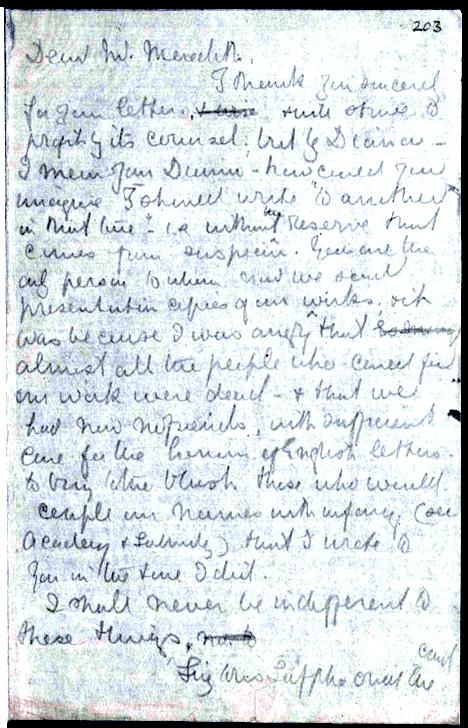 203
Dear Mr. Meredith,
I thank you sincerely
for your letters, & will strive to
profit by its counsel; but by Diana –
I mean your Diana – how could you
imagine I should write "to another
in that line" – i.e. without the reserve that
comes from suspicion. You are the
only person to whom we send
presentation copies of our works, & it
was because I was angry that
almost all the people who cared for
our work were dead – & that we
had now no friends, with sufficient
care for the honour of English letters
to bring to the blush those who would
couple our names with infamy, (see
Academy & Saturday) that I wrote to
you in the tone I did.
I shall never be indifferent to
these things,
Sappho